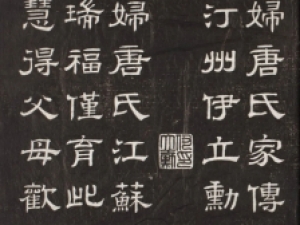 婦唐氏家傳
汀州伊立勳
婦唐氏江蘇
琋福僅育此
慧得父母歡